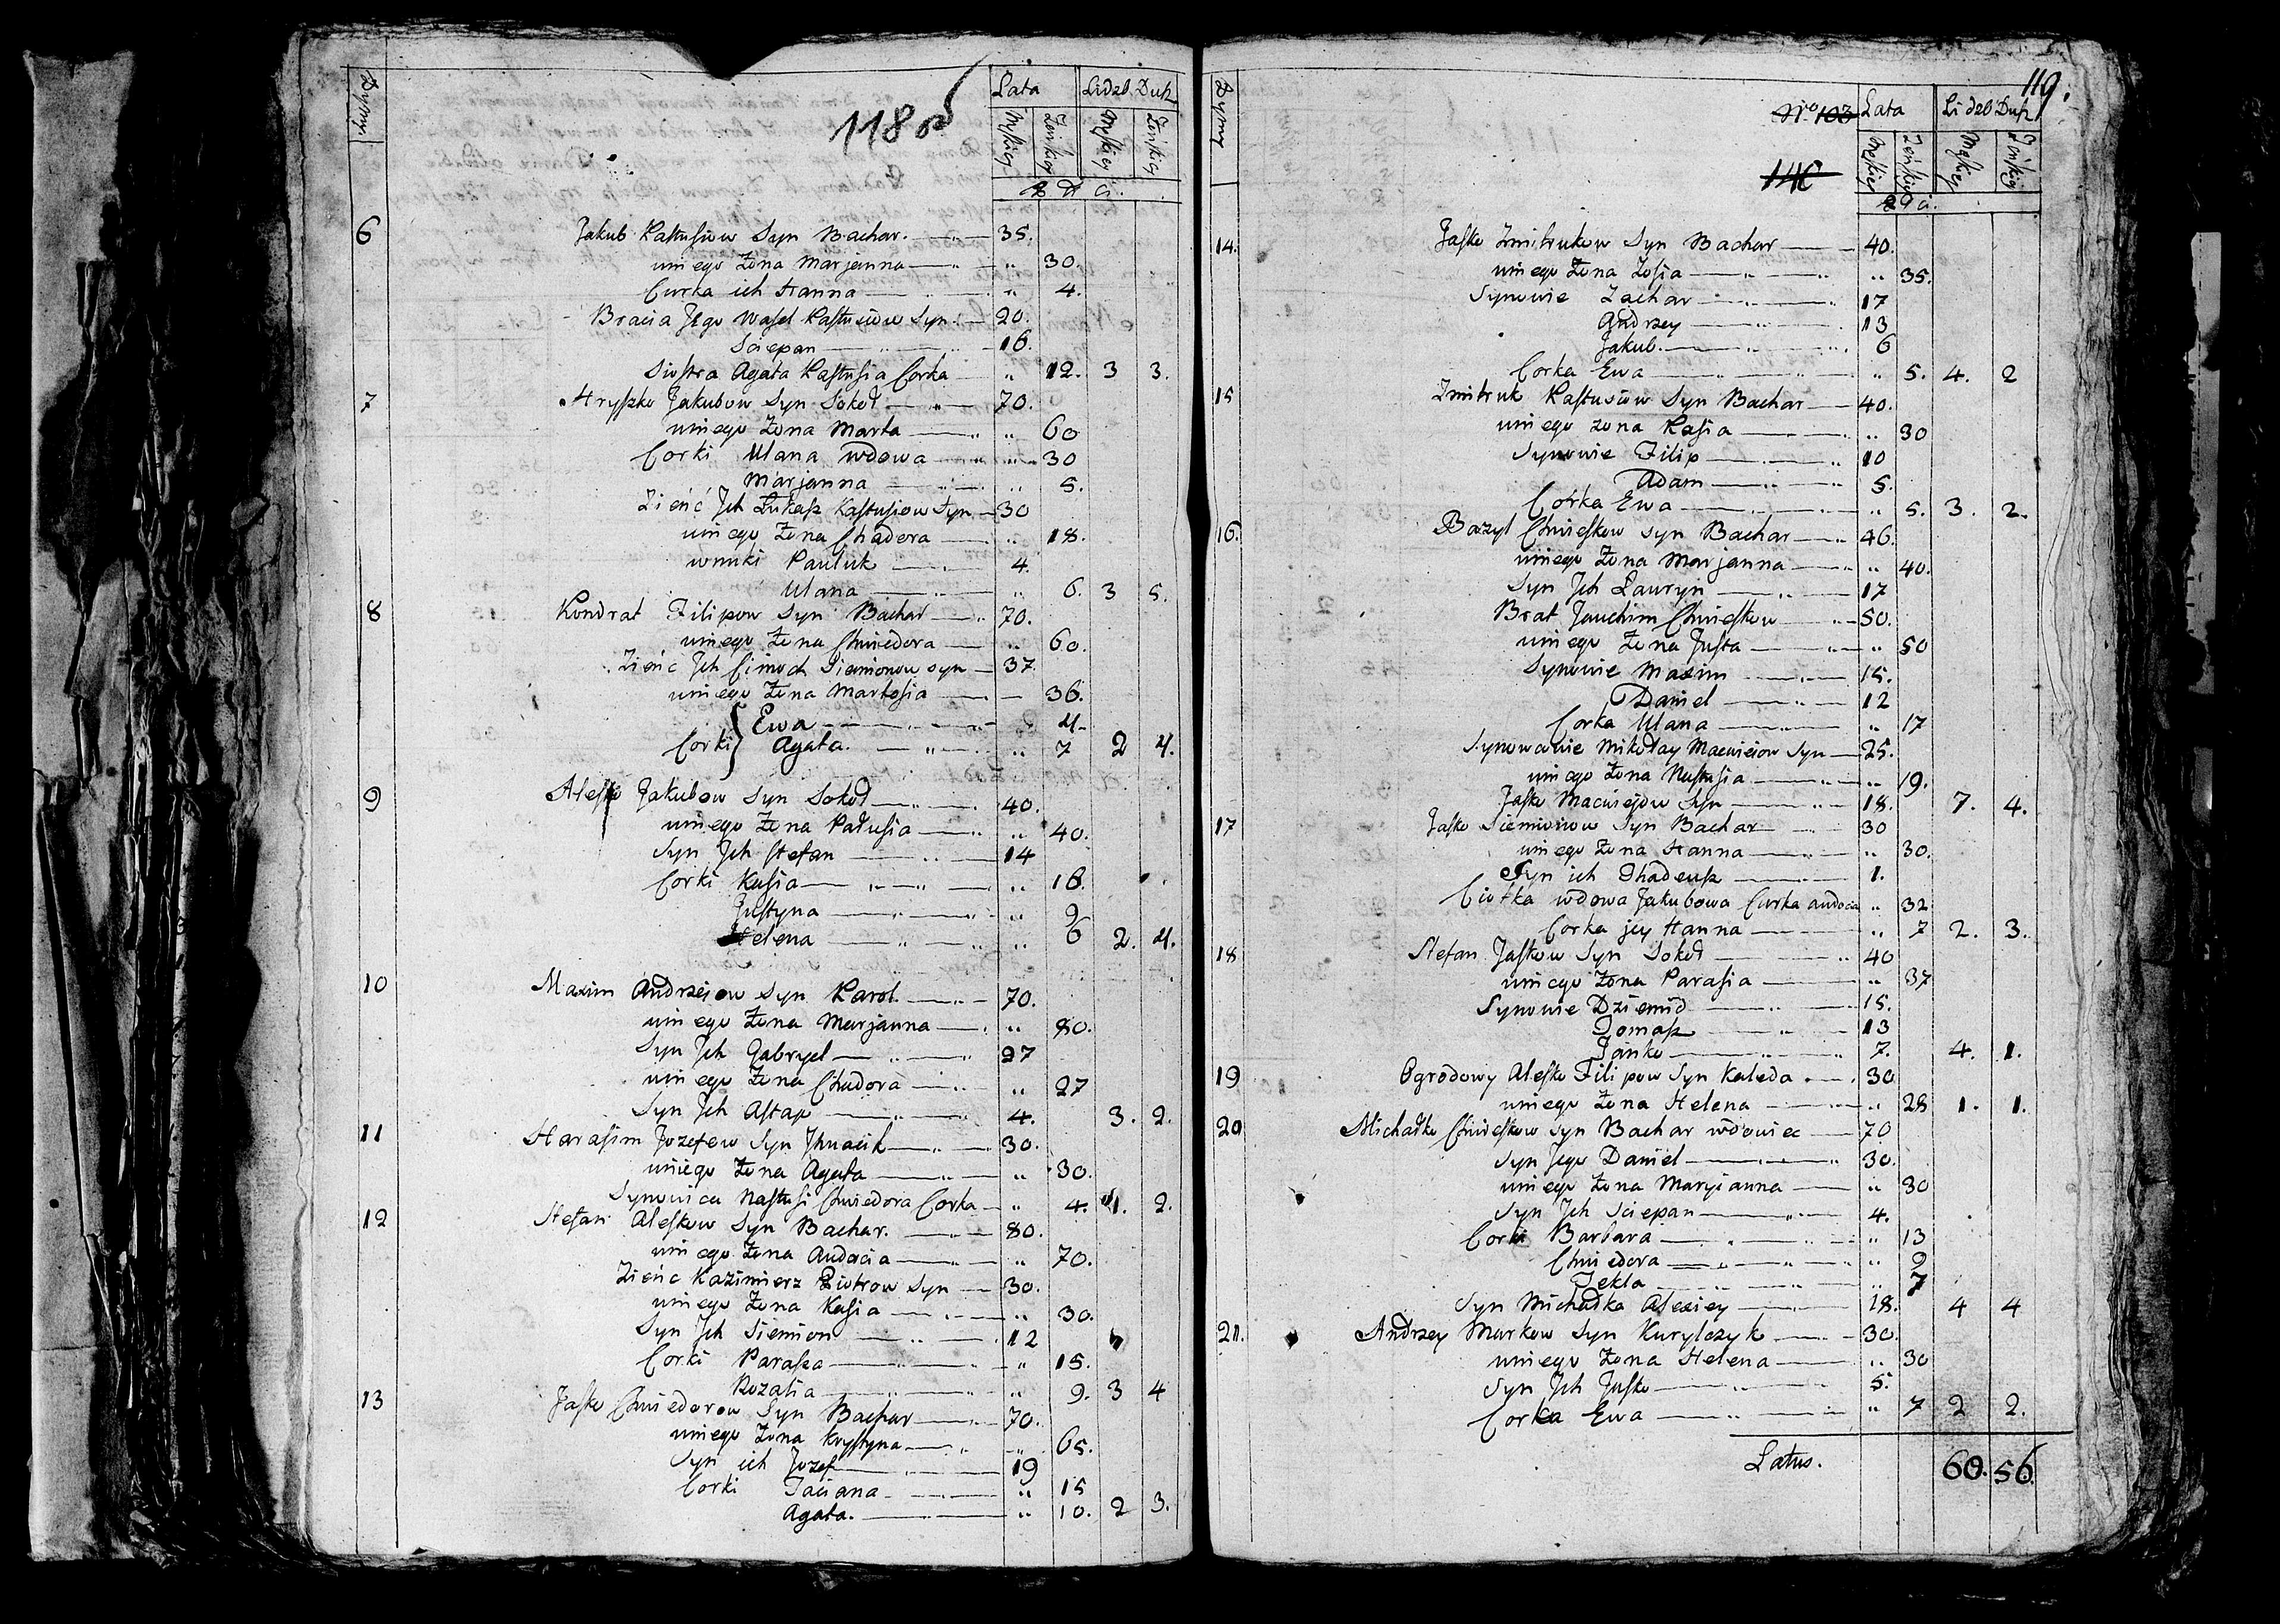 118 об
Dymy.
Lata
Liczb. Dusz
Męskiey
Żeńskiey
Męskiey
Żeńskiey
6 Jakub Kastusiow Syn Bachar. 35.
u niego Żona Marjanna „ 30.
Curka ich Hanna „ 4.
Bracia Jego Wasel Kastusiow Syn 20.
Sciepan 16.
Siostra Agata Kastusia Corka „ 12. 3 3.
7 Hryszko Jakubow Syn Sokoł 70.
u niego Żona Marta „ 60
Corki Ulana wdowa „ 30
Marjanna „ 5.
Zienć Jch Łukasz Kastusiow Syn 30
u niego Żona Chadora „ 18.
wnuki Pauluk 4.
Ulana „ 6. 3 5.
8 Kondrat Filipow Syn Bachar 70.
u niego Żona Chwiedora „ 60.
Zienć Jch Cimoch Siemionow syn 37
u niego Żona Martosia — 36.
Corki Ewa 4.
Agata. „ 7 2 4.
9 Alesko Jakubow Syn Sokoł 40.
u niego Żona Patusia „ 40.
Syn Jch Stefan 14
Corki Kasia „ 16.
Justyna „ 9
Helena „ 6 2. 4.
10 Maxim Andrzeiow Syn Karol 70.
u niego Żona Marjanna „ 80.
Syn Jch Gabryel 27
u niego Żona Chudora „ 27
Syn Jch Astap 4. 3. 2.
11 Harasim Jozefow Syn Jhnacik 30.
u niego Żona Agata „ 30.
Synowica Nastusi Chwiedora Corka „ 4. 1. 2.
12 Stefan Aleskow Syn Bachar. 80.
u niego Żona Audocia „ 70.
Zienć Kazimierz Piotrow Syn 30.
u niego Żona Kasia „ 30.
Syn Jch Siemion 12
Corki Parasza „ 15.
Rozalia „ 9. 3 4
13 Jasko Chwiedorow Syn Bachar 70.
u niego Żona Krystyna „ 65.
Syn ich Jozef 19
Corki Taciana „ 15
Agata. „ 10. 2 3.
119.
Dymy
N° 103
140
Lata
Liczb Dusz
Męskiey
Żeńskiey
Męskiey
Żeńskiey
14. Jasko Zmitrukow Syn Bachar 40.
u niego Żona Zosia „ 35.
Synowie Zachar 17
Andrzey 13
Jakub 6
Corka Ewa „ 5. 4. 2
15 Zmitruk Kastusiow Syn Bachar 40.
u niego żona Kasia „ 30
Synowie Filip 10
Adam 5.
Corka Ewa „ 5. 3. 2.
16. Bazyl Chwieskow syn Bachar 46.
u niego Żona Marjanna „ 40.
Syn Jch Lauryn 17
Brat Jauchim Chwieskow 50.
u niego Żona Justa „ 50
Synowie Maxim 15.
Daniel 12
Corka Ulana „ 17
Synowcowie Mikołay Macwieiow Syn 25.
u niego Żona Nastusia „ 19.
Jasko Macwiejow Syn 18. 7. 4.
17 Jasko Siemionow Syn Bachar 30
u niego Żona Hanna „ 30.
Syn ich Thadeusz 1.
Ciotka wdowa Jakubowa Curka Audocia „ 32
Corka jey Hanna „ 7 2. 3.
18 Stefan Jaskow Syn Sokoł 40
u niego Żona Parasia „ 37
Synowie Dziemid 15.
Tomasz 13
Janko 7. 4. 1.
19 Ogrodowy Alesko Filipow Syn Kaleda 30
u niego Żona Helena „ 28 1. 1.
20 Michałko Chwieskow Syn Bachar wdowiec 70
Syn Jego Daniel 30.
u niego Żona Maryianna „ 30
Syn Jch Sciepan 4.
Corki Barbara „ 13
Chwiedora „ 9
Tekla „ 7
Syn Michałka Alexiey 18. 4 4
21. Andrzey Markow Syn Kurylczyk 30.
u niego Żona Helena „ 30
Syn Jch Jusko 5.
Corka Ewa „ 7 2 2.
Latus. 60. 56.